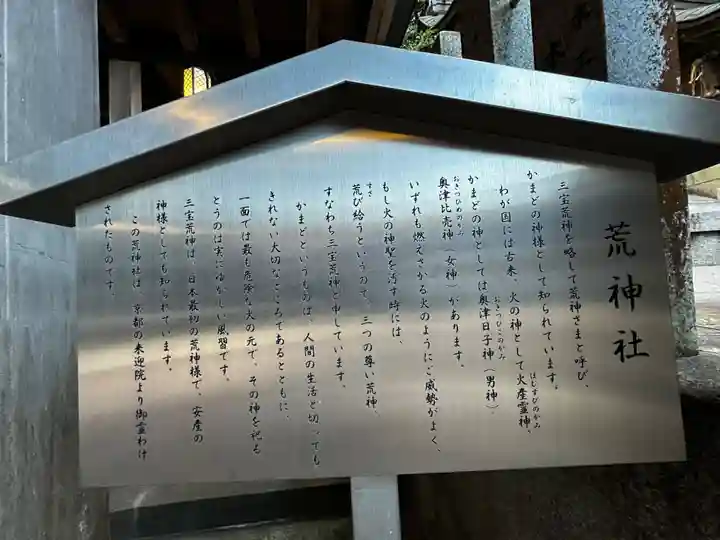 荒神社
三宝荒神を略して荒神さまと呼び、
かまどの神様として知られています。
わが国には古来、火の神として火産霊神、
ほむすびのかみ
かまどの神としては奥津日子神(男神)、
おきつひこのかみ
奥津比売神(女神)があります。
おきつひめのかみ
いずれも燃えさかる火のようにご威勢がよく、
もし火の神聖を汚す時には、
荒び給うというので、三つの尊い荒神、
すさ
すなわち三宝荒神と申しています。
かまどというものは、人間の生活と切っても
きれない大切なところであるとともに、
一面では最も危険な火の元で、その神を祀る
とうのは実にゆかしい風習です。
三宝荒神は、日本最初の荒神様で、安産の
神様としても知られています。
この荒神社は、京都の来迎院より御霊わけ
されたものです。